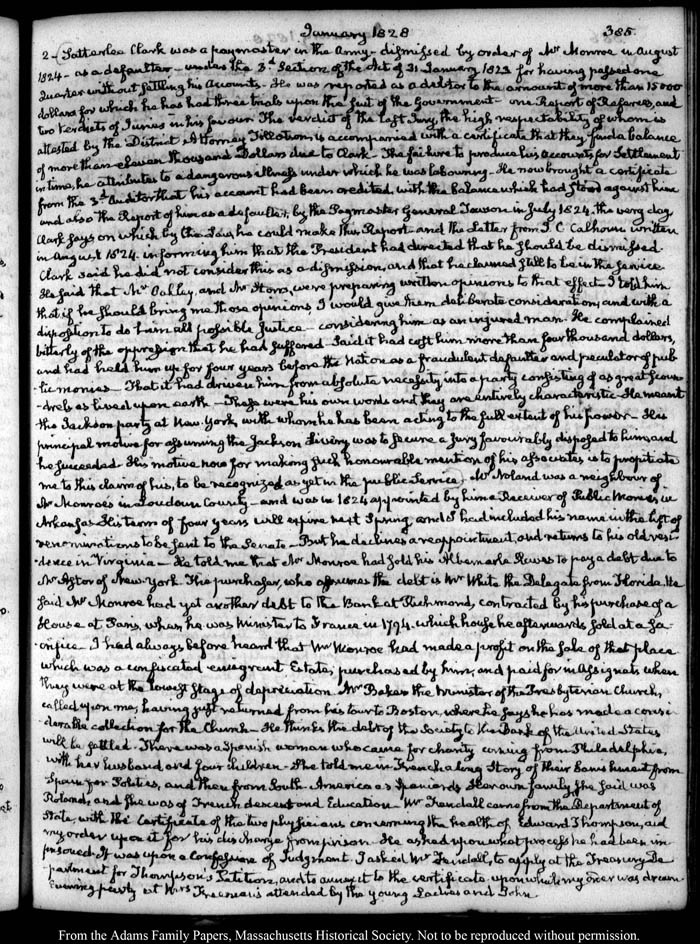 January 1828 385.
2 - Satterlee Clark was a paymaster in the Army - dismissed by order of Mr Monroe in August
1824 - as a defaulter - under the 3d Section of the Act of 31 January 1823 for having passed one
Quarter without settling his Accounts - He was reported as a debtor to the amount of more than 15000
dollars for which he has had three trials upon the suit of the Government - one Report of Referees, and
two Verdicts of Juries in his favour. The verdict of the last Jury, the high respectability of whom is
attested by the District Attorney Tillotson, is accompanied with a certificate that they find a balance
of more than eleven thousand Dollars due to Clark - The failure to produce his Accounts for Settlement
in time, he attributes to a dangerous illness under which he was labouring - He now brought a certificate
from the 3d Auditor that his account had been credited, with the balance which had stood against him
and also the Report of him as a defaulter, by the Paymaster General Towson in July 1824. the very day
Clark says on which by the Law he could make this Report - and the Letter from J. C. Calhoun written
in August 1824. informing him that the President had directed that he should be dismissed
Clark said he did not consider this as a dismission, and that he claimed still to be in the service
He said that Mr Oakley, and Mr Storrs, were preparing written opinions to that effect. I told him
that if he should bring me those opinions I would give them deliberate consideration, and with a
disposition to do him all possible Justice - considering him as an injured man. He complained
bitterly of the oppression that he had suffered. Said it had cost him more than four thousand dollars,
and had held him up for four years before the Nation as a fraudulent defaulter and peculator of pub-
-lic monies - That it had driven him from absolute necessity into a party consisting of as great scoun-
-drels as lived upon earth - These were his own words and they are entirely characteristic. He meant
the Jackson party at New York, with whom he has been acting to the full extent of his power - His
principal motive for assuming the Jackson livery was to secure a Jury favourably disposed to him, and
he succeeded. His motive now for making such honourable mention of his associates is to propitiate
me to this claim of his, to be recognized as yet in the public Service. Mr Noland was a neighbour of
Mr Monroe's in Loudoun County - and was in 1824 appointed by him a Receiver of Public Monies in
Arkansas. His term of four years will expire next Spring and I had included his name in the list of
renominations to be sent to the Senate - But he declines a reappointment, and returns to his old resi-
-dence in Virginia - He told me that Mr Monroe had sold his Albemarle House to pay a debt due to
Mr Astor of New-York. The purchaser, who assumes the debt is Mr White the Delegate from Florida. He
said Mr Monroe had yet another debt to the Bank at Richmond, contracted by his purchase of a
House at Paris, when he was Minister to France in 1794. which house he afterwards sold at a sa-
-crifice - I had always before heard that Mr Monroe had made a profit on the sale of that place
which was a confiscated emigrant Estate, purchased by him, and paid for in Assignats when
they were at the lowest stage of depreciation. Mr Baker the Minister of the Presbyterian Church,
called upon me, having just returned from his tour to Boston, where he says he has made a consi-
-derable collection for the Church - He thinks the debt of the Society to the Bank of the United States
will be settled - There was a Spanish woman who came for charity coming from Philadelphia,
with her husband, and four children - She told me in French a long Story of their banishment from
Spain for Politics, and then from South America as Spaniards. Her own family, she said was
Roland, and she was of French descent and Education. Mr Fendall came from the Department of
State, with the Certificate of the two physicians concerning the health of Edward Thompson, and
my order upon it for his discharge from prison. He asked upon what process he had been im-
prisoned. It was upon a Confession of Judgment. I asked Mr Fendall, to apply at the Treasury De-
-partment for Thompson's Petition, and to annex it to the certificate upon which my order was drawn
Evening party at Mrs Freeman's attended by the young Ladies and John.
From the Adams Family Papers, Massachusetts Historical Society. Not to be reproduced without permission.